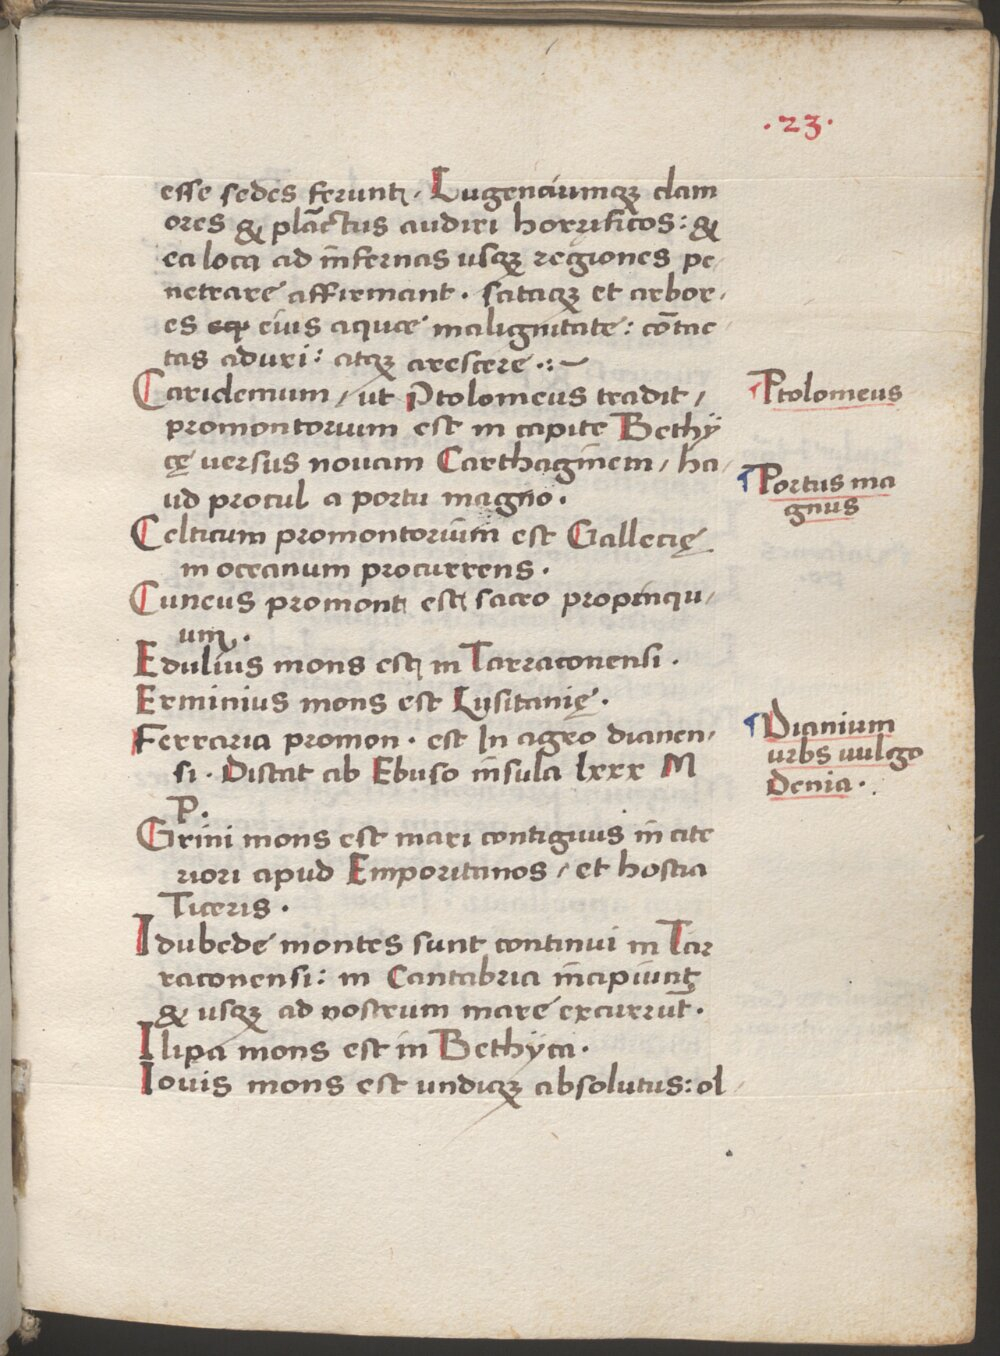 .23.
esse sedes ferunt. Lugentiumqꝫ clam
ores & plāctus audiri horrificos: &
ea loca ad infernas usqꝫ regiones pe-
netrare affirmant. sataqꝫ et arbor-
es eius aquae malignitate: cōtac-
tas aduri: atqꝫ arescere.
Caridemum / ut Ptolomeus tradit /
Ptolomeus
promontorium est in capite Bethÿ
cę uersus novam Carthaginem / ha-
ud procul a portu magno.
Portus ma
gnus
Celticum promontoriūm est Gallecię
in oceanum procurrens.
Cuneus promont est sacro propinqu-
um.
Edulius mons est in Tarraconensi.
Erminius mons est Lysitanię.
Ferraria promon. est In agro dianen-
si. Distat ab Ebuso insula lxxx M
P.
Dianium
urbs uulgo
Denia.
Grini mons est mari contiguus in cite
riori apud Emporitanos / et hostia
Ticeris.
Idubede montes sunt continui in Tar
raconensi: in Cantabria incipiunt
& usqꝫ ad nostrum mare excurrūt.
Ilipa mons est in Bethÿca.
Iouis mons est undiqꝫ absolutus: ol-